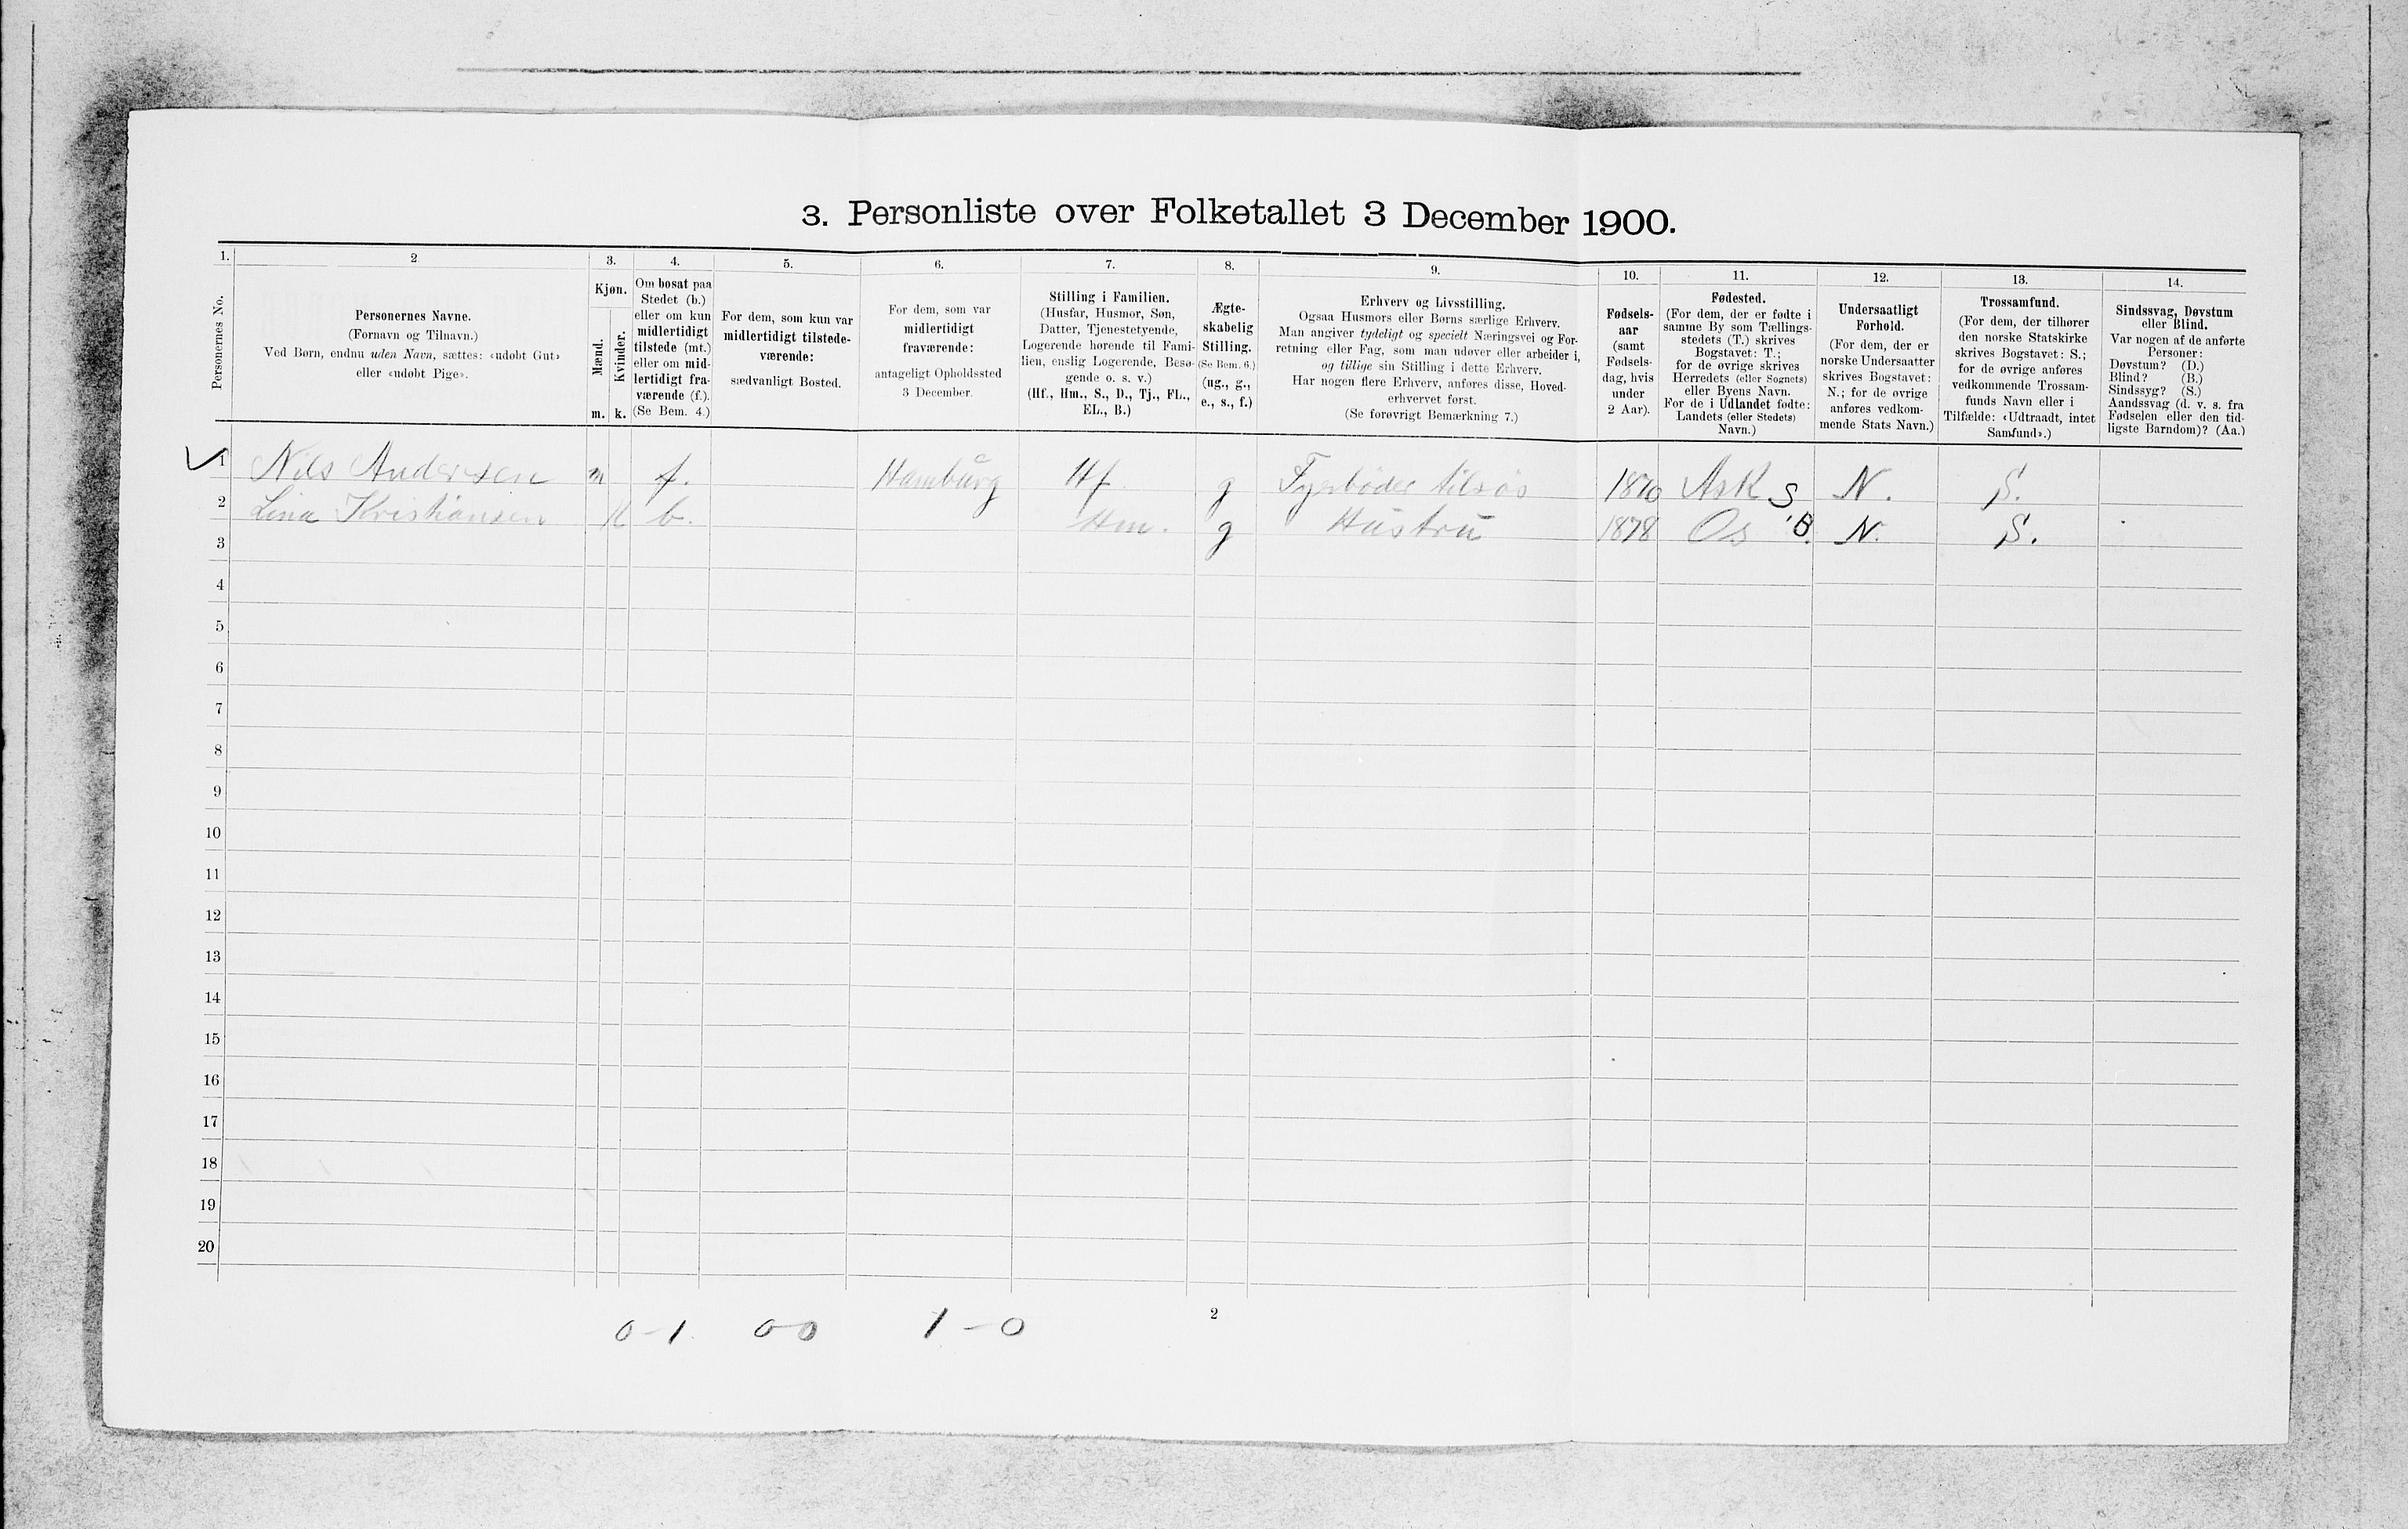 3. Personliste over Folketallet 3 December 1900.
1. 2 3. 4. 5. 6. 7. 8. 9. 10. 11. 12. 13. 14.
Personernes No.
Personernes Navne.
(Fornavn og Tilnavn.)
Ved Børn, endnu uden Navn, sættes: «udøbt Gut»
eller «udøbt Pige».
Kjøn.
Mænd. Kvinder.
m. k.
Om bosat paa
Stedet (b.)
eller om kun
midlertidigt
tilstede (mt.)
eller om mid-
lertidigt fra-
værende (f.).
(Se Bem. 4.)
For dem, som kun var
midlertidigt tilstede-
værende:
sædvanligt Bosted.
For dem, som var
midlertidigt
fraværende:
antageligt Opholdssted
3 December.
Stilling i Familien.
(Husfar, Husmor, Søn,
Datter, Tjenestetyende,
Logerende hørende til Fami-
lien, enslig Logerende, Besø-
gende o. s. v.)
(Hf., Hm., S., D., Tj., FL.,
EL., B.)
Ægte-
skabelig
Stilling.
(Se Bem. 6.)
(ug., g.,
e., s., f.)
Erhverv og Livsstilling.
Ogsaa Husmors eller Børns særlige Erhverv.
Man angiver tydeligt og specielt Næringsvei og For-
retning eller Fag, som man udøver eller arbeider i,
og tillige sin Stilling i dette Erhverv.
Har nogen flere Erhverv, anføres disse, Hoved-
erhvervet først.
(Se forøvrigt Bemærkning 7.)
Fødsels-
aar
(samt
Fødsels-
dag, hvis
under
2 Aar).
Fødested.
(For dem, der er fødte i
samme By som Tællings-
stedets (T.) skrives
Bogstavet: T.;
for de øvrige skrives
Herredets (eller Sognets)
eller Byens Navn.
For de i Udlandet fødte:
Landets (eller Stedets)
Navn.)
Undersaatligt
Forhold.
(For dem, der er
norske Undersaatter
skrives Bogstavet:
N.; for de øvrige
anføres vedkom-
mende Stats Navn.)
Trossamfund.
(For dem, der tilhører
den norske Statskirke
skrives Bogstavet: S.;
for de øvrige anføres
vedkommende Trossam-
funds Navn eller i
Tilfælde: «Udtraadt, intet
Samfund».)
Sindssvag, Døvstum
eller Blind.
Var nogen af de anførte
Personer:
Døvstum? (D.)
Blind? (B.)
Sindssyg? (S.)
Aandssvag (d. v. s. fra
Fødselen eller den tid-
ligste Barndom)? (Aa.)
1 Nils Andersen m f. Hamburg Hf. g Fyrbøder tilsøs 1870 Ask S N. S.
2 Lina Kristiansen k b. Hm. g Hustru 1878 Os B. N. S.
3
4
5
6
7
8
9
10
11
12
13
14
15
16
17
18
19
20
2
0-1. 0-0 1-0